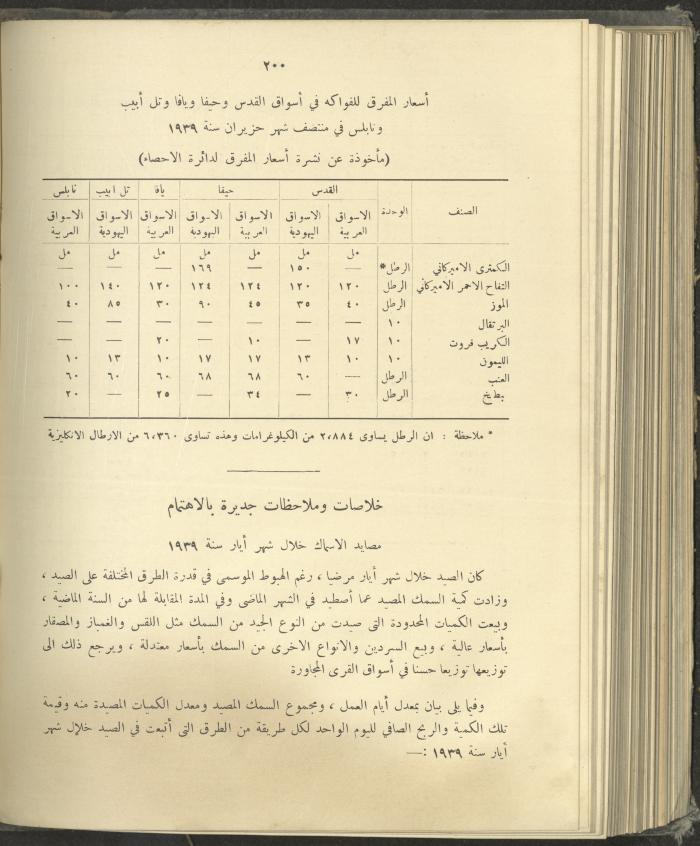 ٢٠٠
أسعار المفرق للفواكه في أسواق القدس وحيفا ويافا وتل أبيب
ونابلس في منتصف شهر حزيران سنة ١٩٣٩
(مأخوذة عن نشرة أسعار المفرق لدائرة الاحصاء)
الصنف الوحدة القدس حيفا يافا تل ابيب نابلس
الاسواق الاسواق الاسواق الاسواق الاسواق الاسواق الاسواق
العربية اليهودية العربية اليهودية العربية اليهودية العربية
مل مل مل مل مل مل مل
الكمثرى الاميركاني الرطل* — ١٥٠ — ١٦٩ — — —
التفاح الاحمر الاميركاني الرطل ١٢٠ ١٢٠ ١٢٤ ١٢٤ ١٢٠ ١٤٠ ١٠٠
الموز الرطل ٤٠ ٣٥ ٤٥ ٩٠ ٣٠ ٨٥ ٤٠
البرتقال ١٠ — — — — — — —
الكريب فروت ١٠ ١٧ — ١٠ — ٢٠ — —
الليمون ١٠ ١٠ ١٣ ١٧ ١٧ ١٠ ١٣ ١٠
العنب الرطل — ٦٠ ٦٨ ٦٨ ٦٠ ٦٠ ٦٠
بطيخ الرطل ٣٠ — ٣٤ — ٢٥ — ٢٠
* ملاحظة : ان الرطل يساوى ٢،٨٨٤ من الكيلوغرامات وهذه تساوى ٦،٣٦٠ من الارطال الانكليزية
خلاصات وملاحظات جديرة بالاهتمام
مصايد الاسماك خلال شهر أيار سنة ١٩٣٩
كان الصيد خلال شهر أيار مرضيا ، رغم الهبوط الموسمى في قدرة الطرق المختلفة على الصيد ،
وزادت كمية السمك المصيد عما أصطيد في الشهر الماضى وفي المدة المقابلة لها من السنة الماضية ،
وبيعت الكميات المحدودة التى صيدت من النوع الجيد من السمك مثل اللقس والغمباز والمصفار
بأسعار عالية ، وبيع السردين والانواع الاخرى من السمك بأسعار معتدلة ، ويرجع ذلك الى
توزيعها توزيعا حسنا في أسواق القرى المجاورة
وفيما يلى بيان بمعدل أيام العمل ، ومجموع السمك المصيد ومعدل الكميات المصيدة منه وقيمة
تلك الكمية والربح الصافي لليوم الواحد لكل طريقة من الطرق التى أتبعت في الصيد خلال شهر
أيار سنة ١٩٣٩ :—